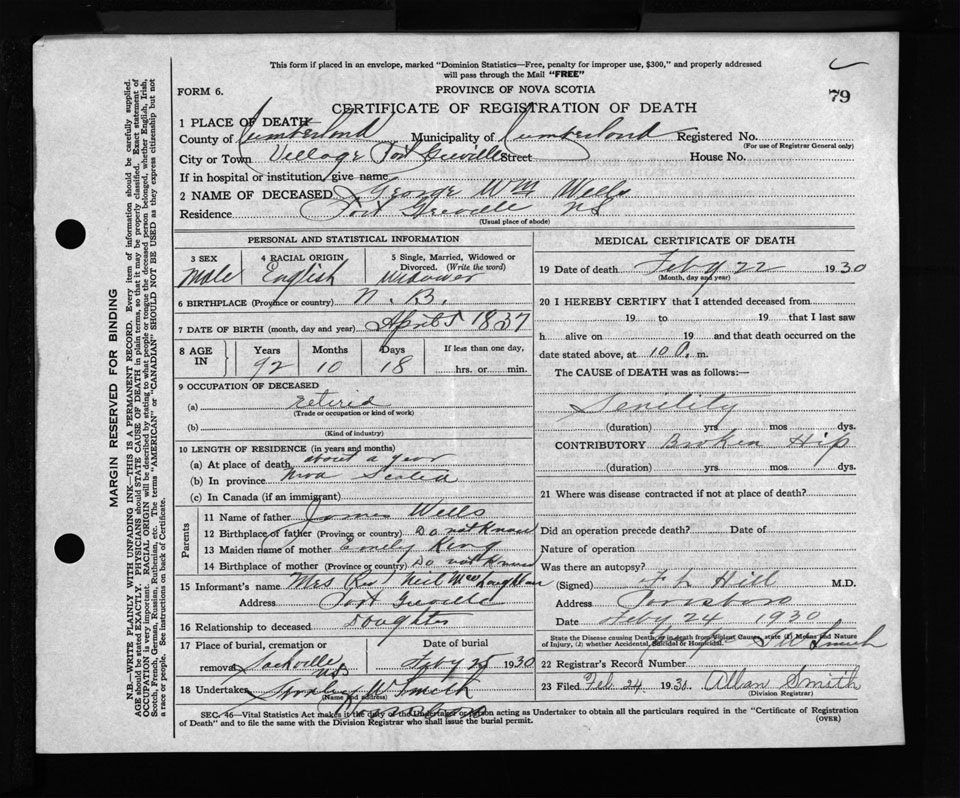 This form if placed in an envelope, marked "Dominion Statistics—Free, penalty for improper use, $300," and properly addressed
will pass through the Mail "FREE"
FORM 6.
PROVINCE OF NOVA SCOTIA
79
CERTIFICATE OF REGISTRATION OF DEATH
1 PLACE OF DEATH
County of Cumberland Municipality of Cumberland Registered No.
(For use of Registrar General only)
City or Town Village Port Greville Street House No.
If in hospital or institution, give name
2 NAME OF DECEASED George Wm Wells
Residence Port Greville NS
(Usual place of abode)
PERSONAL AND STATISTICAL INFORMATION
3 SEX 4 RACIAL ORIGIN 5 Single, Married, Widowed or
Divorced. (Write the word)
Male English Widower
6 BIRTHPLACE (Province or country) N. B.
7 DATE OF BIRTH (month, day and year) April 5 1837
8 AGE IN Years Months Days If less than one day,
92 10 18 hrs. or min.
9 OCCUPATION OF DECEASED
(a) retired
(Trade or occupation or kind of work)
(b)
(Kind of industry)
10 LENGTH OF RESIDENCE (in years and months)
(a) At place of death about a year
(b) In province Nova Scotia
(c) In Canada (if an immigrant)
Parents
11 Name of father James Wells
12 Birthplace of father (Province or country) Do not Know
13 Maiden name of mother Emely King
14 Birthplace of mother (Province or country) Do not Know
15 Informant's name Mrs Rev Neil
Address Port Greville
16 Relationship to deceased Doughter
17 Place of burial, cremation or Date of burial
removal Sackville NB Feby 25 1930
18 Undertaker W Smith
(Name and address)
MEDICAL CERTIFICATE OF DEATH
19 Date of death Feby 22 1930
(Month, day and year)
20 I HEREBY CERTIFY that I attended deceased from
19 to 19 that I last saw
h alive on 19 and that death occurred on the
date stated above, at 10 m.
The CAUSE of DEATH was as follows:—
Senility
(duration) yrs mos dys.
CONTRIBUTORY Broken Hip
(duration) yrs mos dys.
21 Where was disease contracted if not at place of death?
Did an operation precede death? Date of
Nature of operation
Was there an autopsy?
(Signed) Hill M.D.
Address Parrsboro
Date Feby 24 1930
State the Disease causing Death, or in death from Violent Causes, state (1) Means and Nature
of Injury, (2) whether Accidental, Suicidal or Homicidal. Smith
22 Registrar's Record Number
23 Filed Feb 24 1930 Allan Smith
(Division Registrar)
SEC. 46—Vital Statistics Act makes it the duty of the Undertaker or person acting as Undertaker to obtain all the particulars required in the "Certificate of Registration
of Death" and to file the same with the Division Registrar who shall issue the burial permit.
(OVER)
MARGIN RESERVED FOR BINDING
N.B.—WRITE PLAINLY WITH UNFADING INK—THIS IS A PERMANENT RECORD. Every item of information should be carefully supplied.
AGE should be stated EXACTLY. PHYSICIANS should STATE CAUSE OF DEATH in plain terms, so that it may be properly classified. Exact statement of
OCCUPATION is very important. RACIAL ORIGIN will be described by stating to what people or tongue the deceased person belonged, whether English, Irish,
Scotch, French, German, Russian, Ruthenian, etc. The terms "AMERICAN" or "CANADIAN" SHOULD NOT BE USED as they express citizenship but not
a race or people. See instructions on back of Certificate.